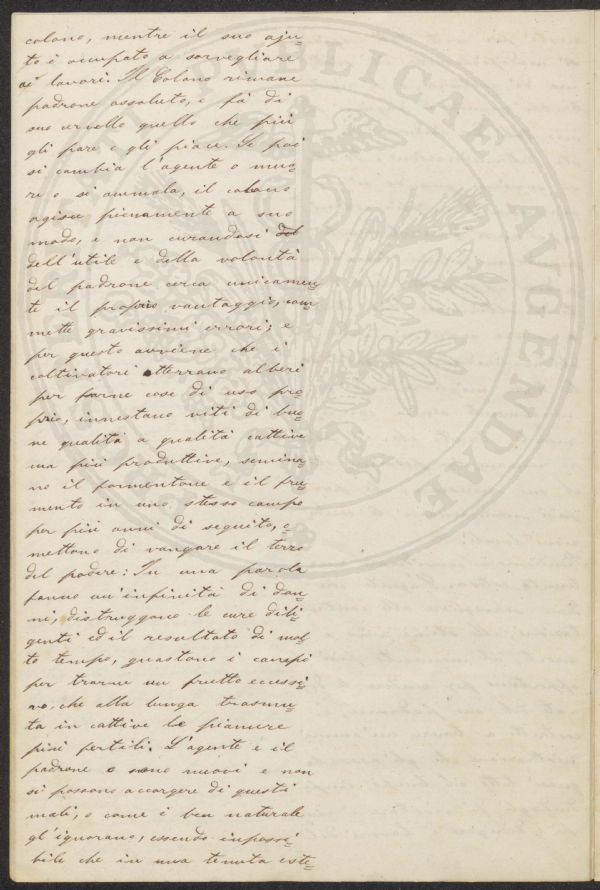 colono, mentre il suo aju=
to è occupato a sorvegliare
ai lavori. Il Colono rimane
padrone assoluto, e fà di
suo cervello quello che più
gli pare e gli piace. Se poi
si cambia l'agente o muo=
re o si ammala, il colono
agisce pienamente a suo
modo, e non curandosi del
dell'utile e della volontà
del padrone cerca unicamen=
te il proprio vantaggio, com
mette gravissimi errori; e
per questo avviene che i
coltivatori atterrano alberi
per farne cose di uso pro=
prio, innestano viti di buo=
ne qualità a qualità cattive
ma più produttive, semina=
no il formentone e il fru=
mento in uno stesso campo
per più anni di seguito, o=
mettono di vangare il terzo
del podere: In una parola
fanno un'infinità di dan=
ni, distruggono le cure dili=
genti ed il resultato di mol
to tempo, guastano i campi
per trarne un frutto eccessi=
vo, che alla lunga trasmu=
ta in cattive le pianure
più fertili. L'agente e il
padrone o sono nuovi e non
si possono accorgere di questi
mali, o come è ben naturale
gl'ignorano, essendo impossi=
bile che in una tenuta este=
PUBLICAE
AUGENDAE